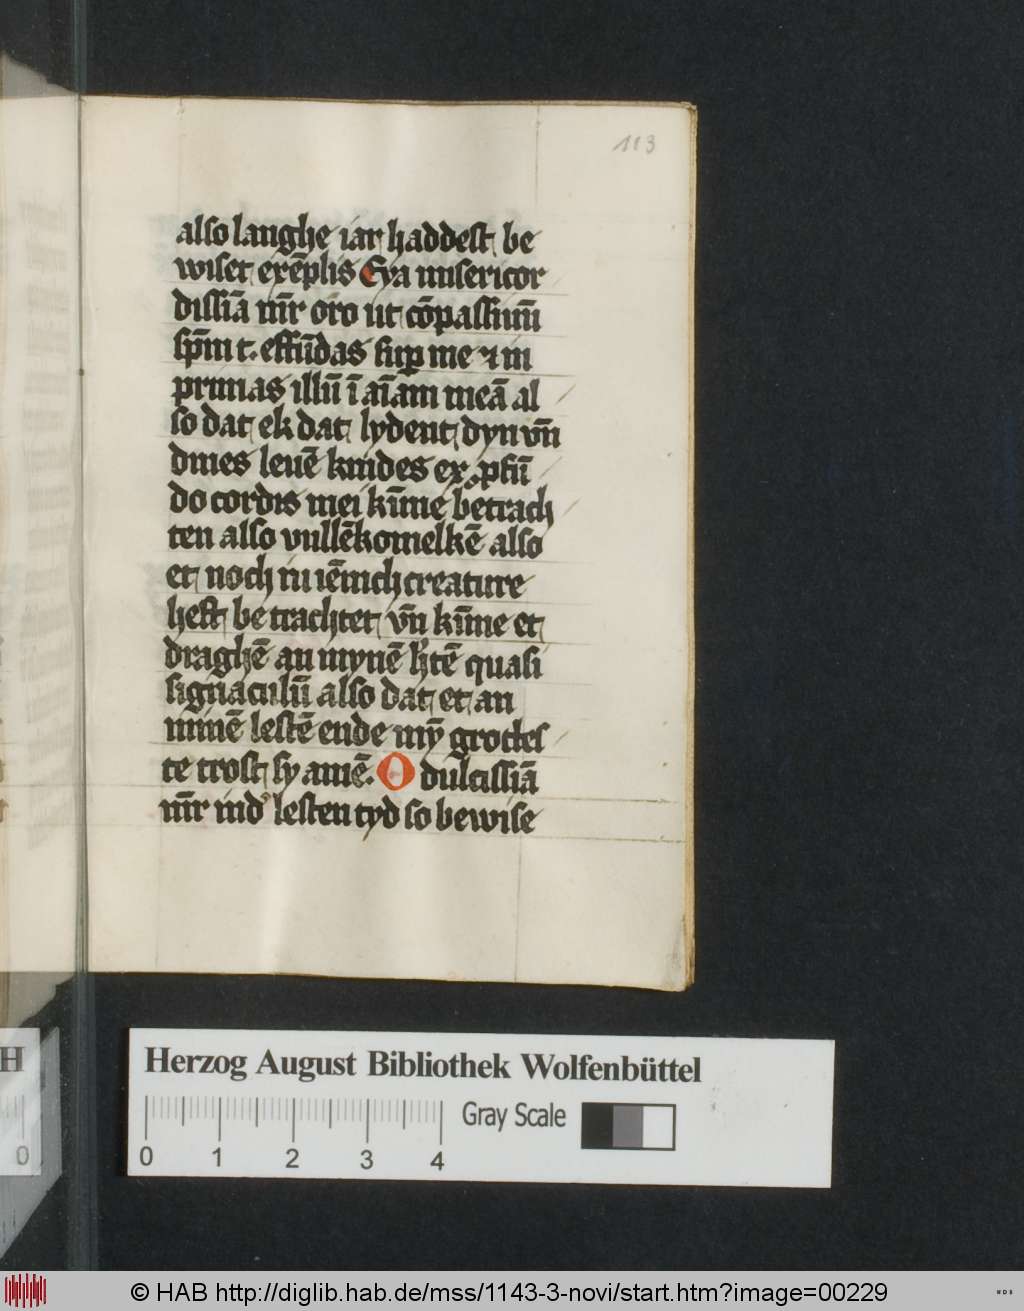 113
also langhe iar haddest be
wiset exēplis Eya misericor
dissīa mr̄ oro ut cōpassiuū
sp̄m t. effūdas sup me ⁊ in
primas illū ī aīam meā al
so dat ek dat lydent dyn vn̄
dines leuē kindes ex pfū
do cordis mei kīme betrach
ten also vullēkomelkē also
et noch ni iēnich creature
heft betrachtet vn̄ kīme et
draghē an mynē h̄tē quasi
signaculū also dat et an
minē lestē ende mȳ grotes
te trost sy amē. O dulcissīa
mr̄ in d' lesten tyd so bewise
H
0
Herzog August Bibliothek Wolfenbüttel
0 1 2 3 4
Gray Scale
© HAB http://diglib.hab.de/mss/1143-3-novi/start.htm?image=00229